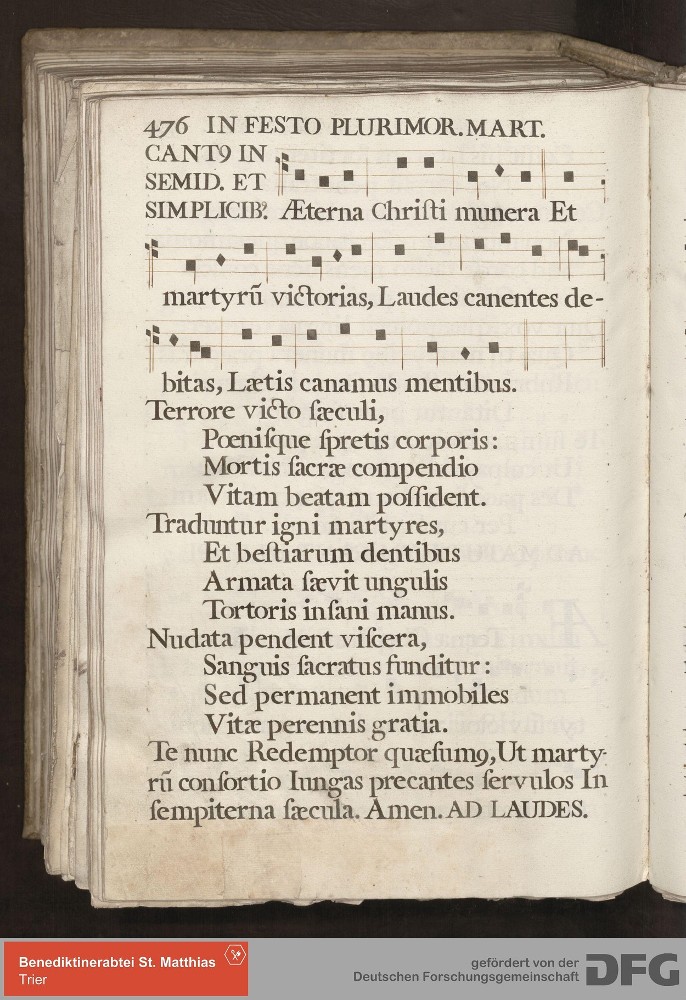 476 IN FESTO PLURIMOR. MART.
CANTꝰ IN
SEMID. ET
SIMPLICIBꝰ. Æterna Chriſti munera Et
martyrũ victorias, Laudes canentes de-
bitas, Lætis canamus mentibus.
Terrore victo ſæculi,
Pœniſque ſpretis corporis:
Mortis ſacræ compendio
Vitam beatam poſſident.
Traduntur igni martyres,
Et beſtiarum dentibus
Armata ſævit ungulis
Tortoris inſani manus.
Nudata pendent viſcera,
Sanguis ſacratus funditur:
Sed permanent immobiles
Vitæ perennis gratia.
Te nunc Redemptor quæſumꝰ, Ut marty-
rũ conſortio Iungas precantes ſervulos In
ſempiterna ſæcula. Amen. AD LAUDES.
Benediktinerabtei St. Matthias
Trier
gefördert von der
Deutschen Forschungsgemeinschaft
DFG